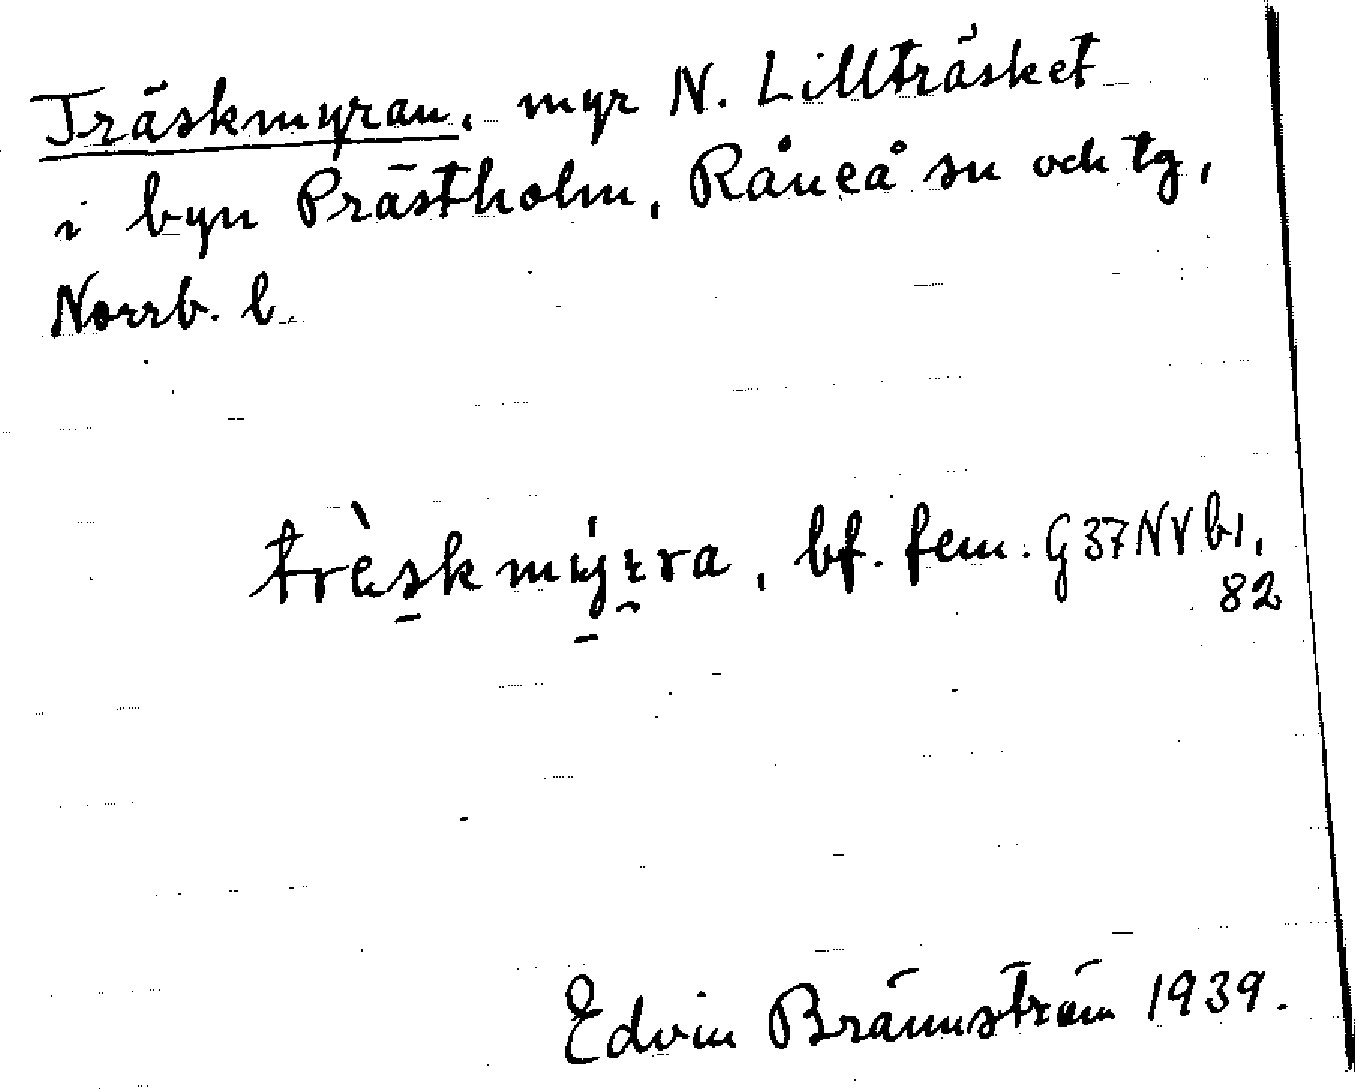 Träskmyran, myr N. Lillträsket
i byn Prästholm, Råneå sn och tg,
Norrb. l.
trèskmyrra, bf. fem. G37NVb1,
82
Edvin Brännström 1939.